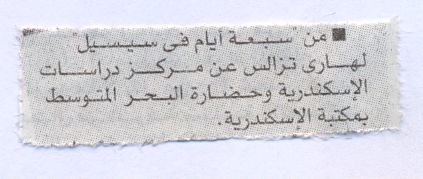 ■ من "سبعة أيام فى سيسيل"
لهارى تزالس عن مركز دراسات
الإسكندرية وحضارة البحر المتوسط
بمكتبة الإسكندرية.